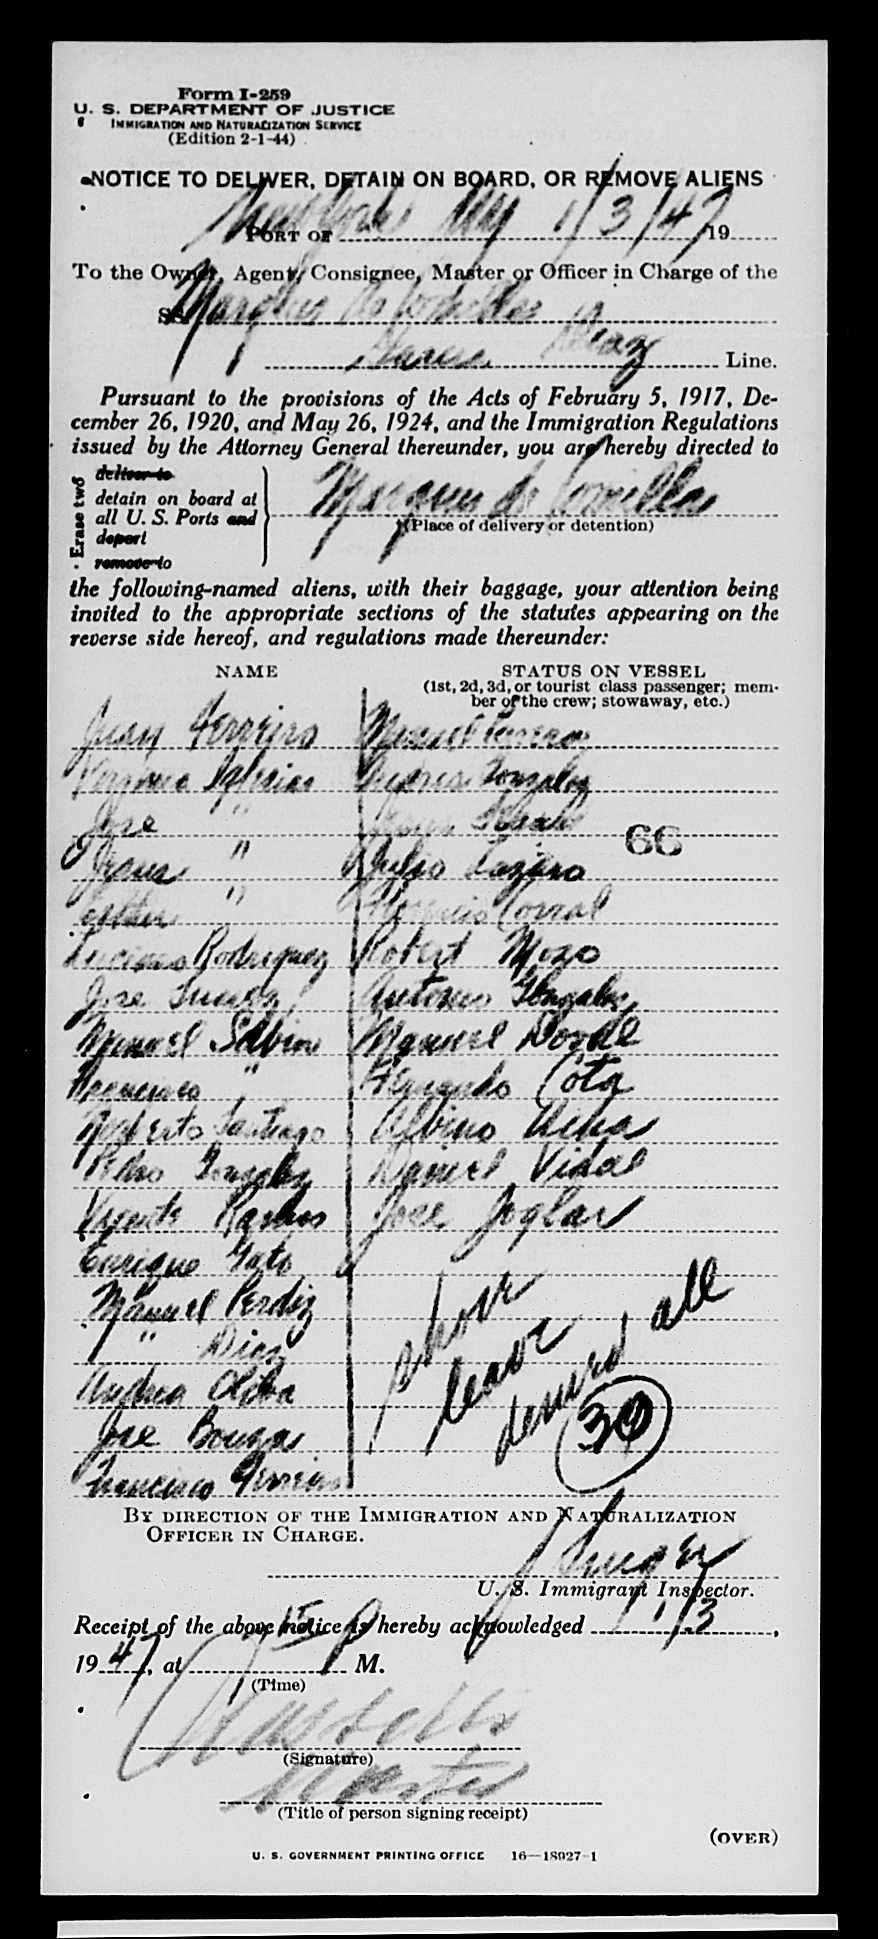 Form I-259
U. S. DEPARTMENT OF JUSTICE
IMMIGRATION AND NATURALIZATION SERVICE
(Edition 2-1-44)
NOTICE TO DELIVER, DETAIN ON BOARD, OR REMOVE ALIENS
New York NY 1/3/47
PORT OF 19
To the Owner, Agent, Consignee, Master or Officer in Charge of the
SS Marques de Comillas
Garcia Diaz Line.
Pursuant to the provisions of the Acts of February 5, 1917, De-
cember 26, 1920, and May 26, 1924, and the Immigration Regulations
issued by the Attorney General thereunder, you are hereby directed to
Erase two
deliver to
detain on board at
all U. S. Ports and
deport
remove to
Marques de Comillas
(Place of delivery or detention)
the following-named aliens, with their baggage, your attention being
invited to the appropriate sections of the statutes appearing on the
reverse side hereof, and regulations made thereunder:
NAME STATUS ON VESSEL
(1st, 2d, 3d, or tourist class passenger; mem-
ber of the crew; stowaway, etc.)
Juan Ferreiro Manuel
Iglesias Andres Gonzalez
Jose "
66
Jesus " Julio Lazaro
Esther " Corral
Luciano Rodriguez Robert Mozo
Jose Suarez Antonio Gonzalez
Manuel Sabin Manuel
Francisco " Fernando Cota
Roberto Santiago Albino
Pedro Gonzalez Daniel Vidal
Vicente Jose Joglar
Enrique Gato
Manuel Perdiz
" Diaz
Andres
Jose Bouzas
Francisco Ferreiro
shore
leave
denied all
30
BY DIRECTION OF THE IMMIGRATION AND NATURALIZATION
OFFICER IN CHARGE.
U. S. Immigrant Inspector.
Receipt of the above notice is hereby acknowledged 1/3,
1947, at 15 P M.
(Time)
(Signature)
Master
(Title of person signing receipt)
(OVER)
U. S. GOVERNMENT PRINTING OFFICE 16—18927-1